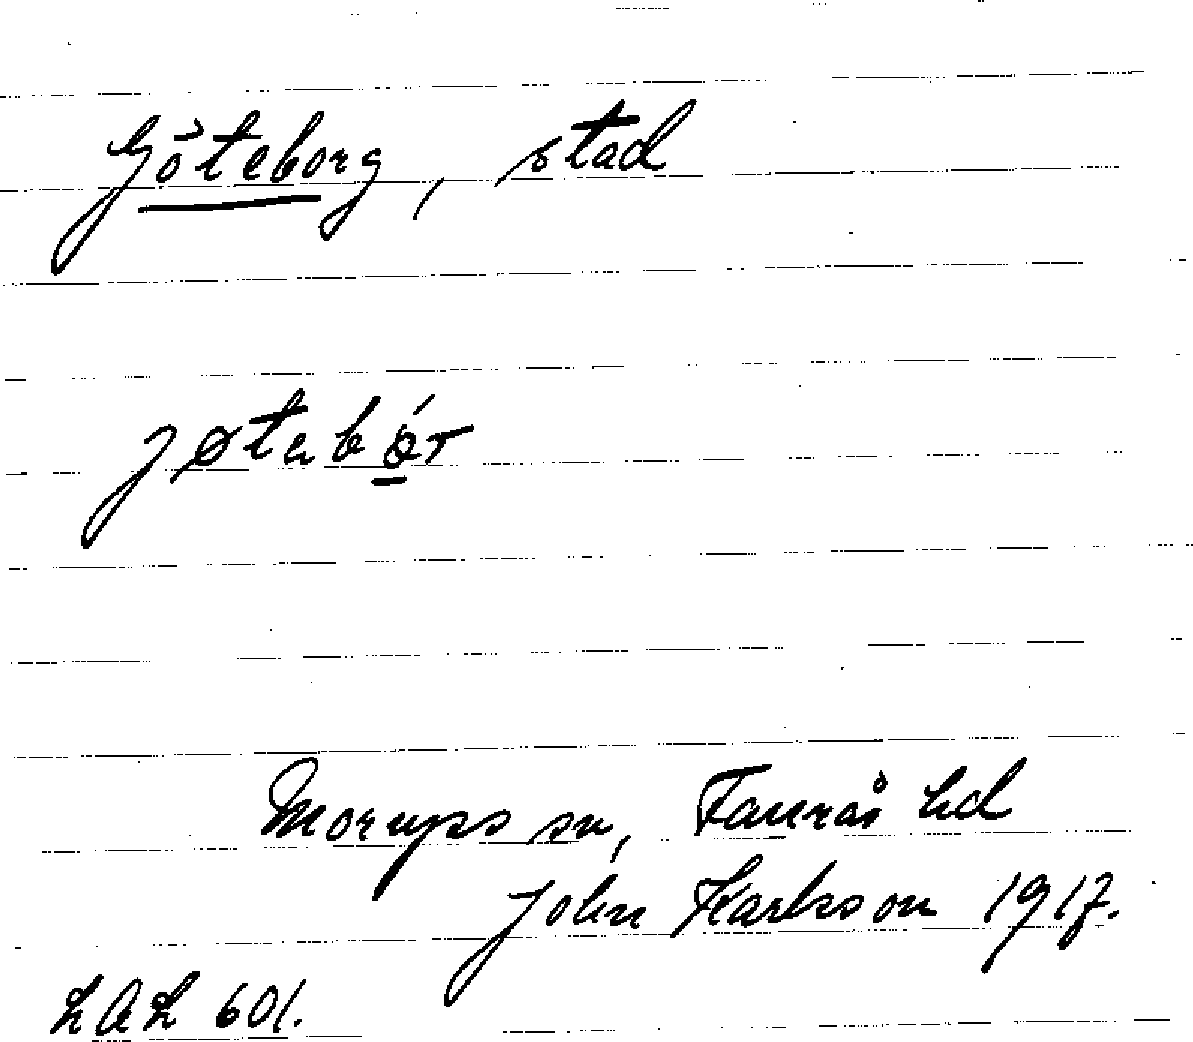 Göteborg, stad
jøtabór
Morups sn, Faurås hd
John Karlsson 1917.
LAL 601.